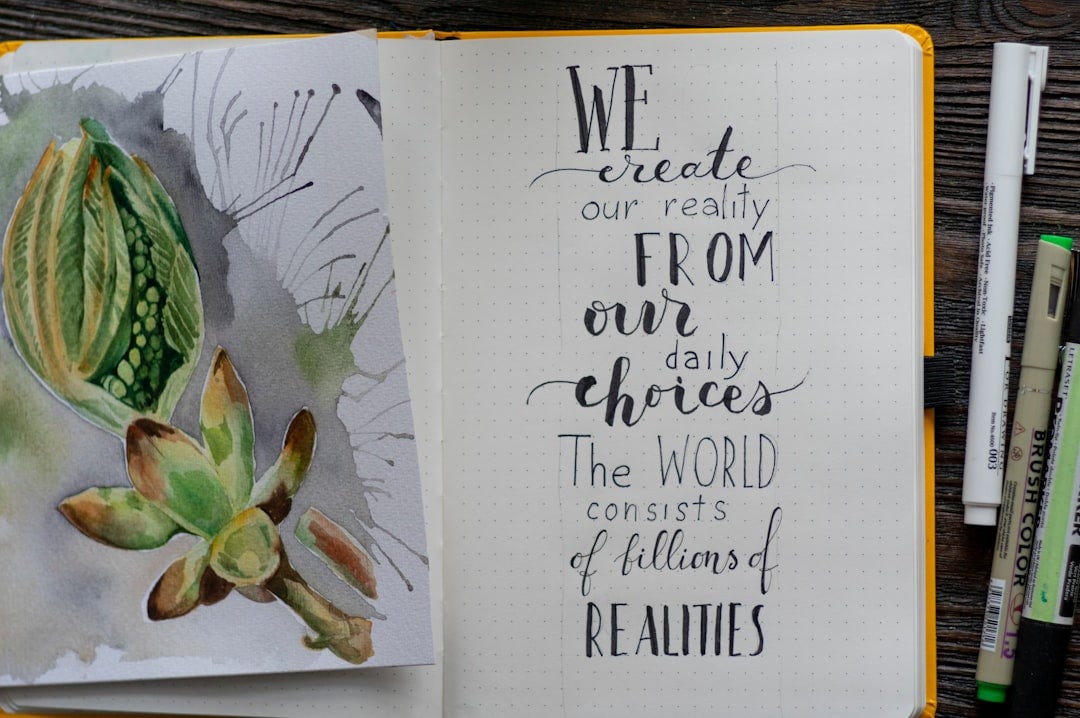 WE
create
our reality
FROM
our
daily
choices
The WORLD
consists
of billions of
REALITIES
·Pigmented Ink ·Acid Free ·Non-Toxic ·Lightfast
Item No.4600 003
BRUSH COLOR
LETRASET